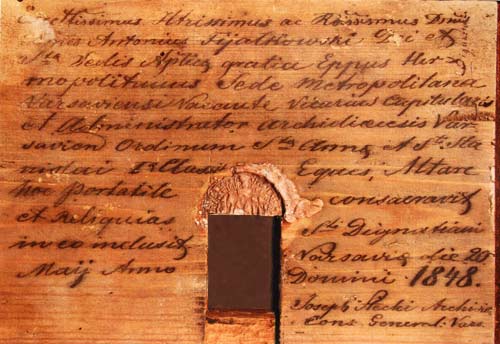 Excellissimus Illtrissimus ac Rssissimus Dnus
Antonius Fijałkowski Dei et
Stae Sedis Aplicae gratia Eppus Her-
mopolitanus Sede Metropolitana
Varsaviensi Vacante Vicarius Capitularis
et Administrator archidiaecesis Var-
savien Ordinum Stae Annae et Sti Sta-
nislai Iae Classis Eques, Altare
hoc portatile consacravit
et Reliquias Sti Dignatiani
in eo inclusit Varsaviae die 20
Maij Anno Domini 1848.
Joseph Stecki Archid.
Cons General: Vars.